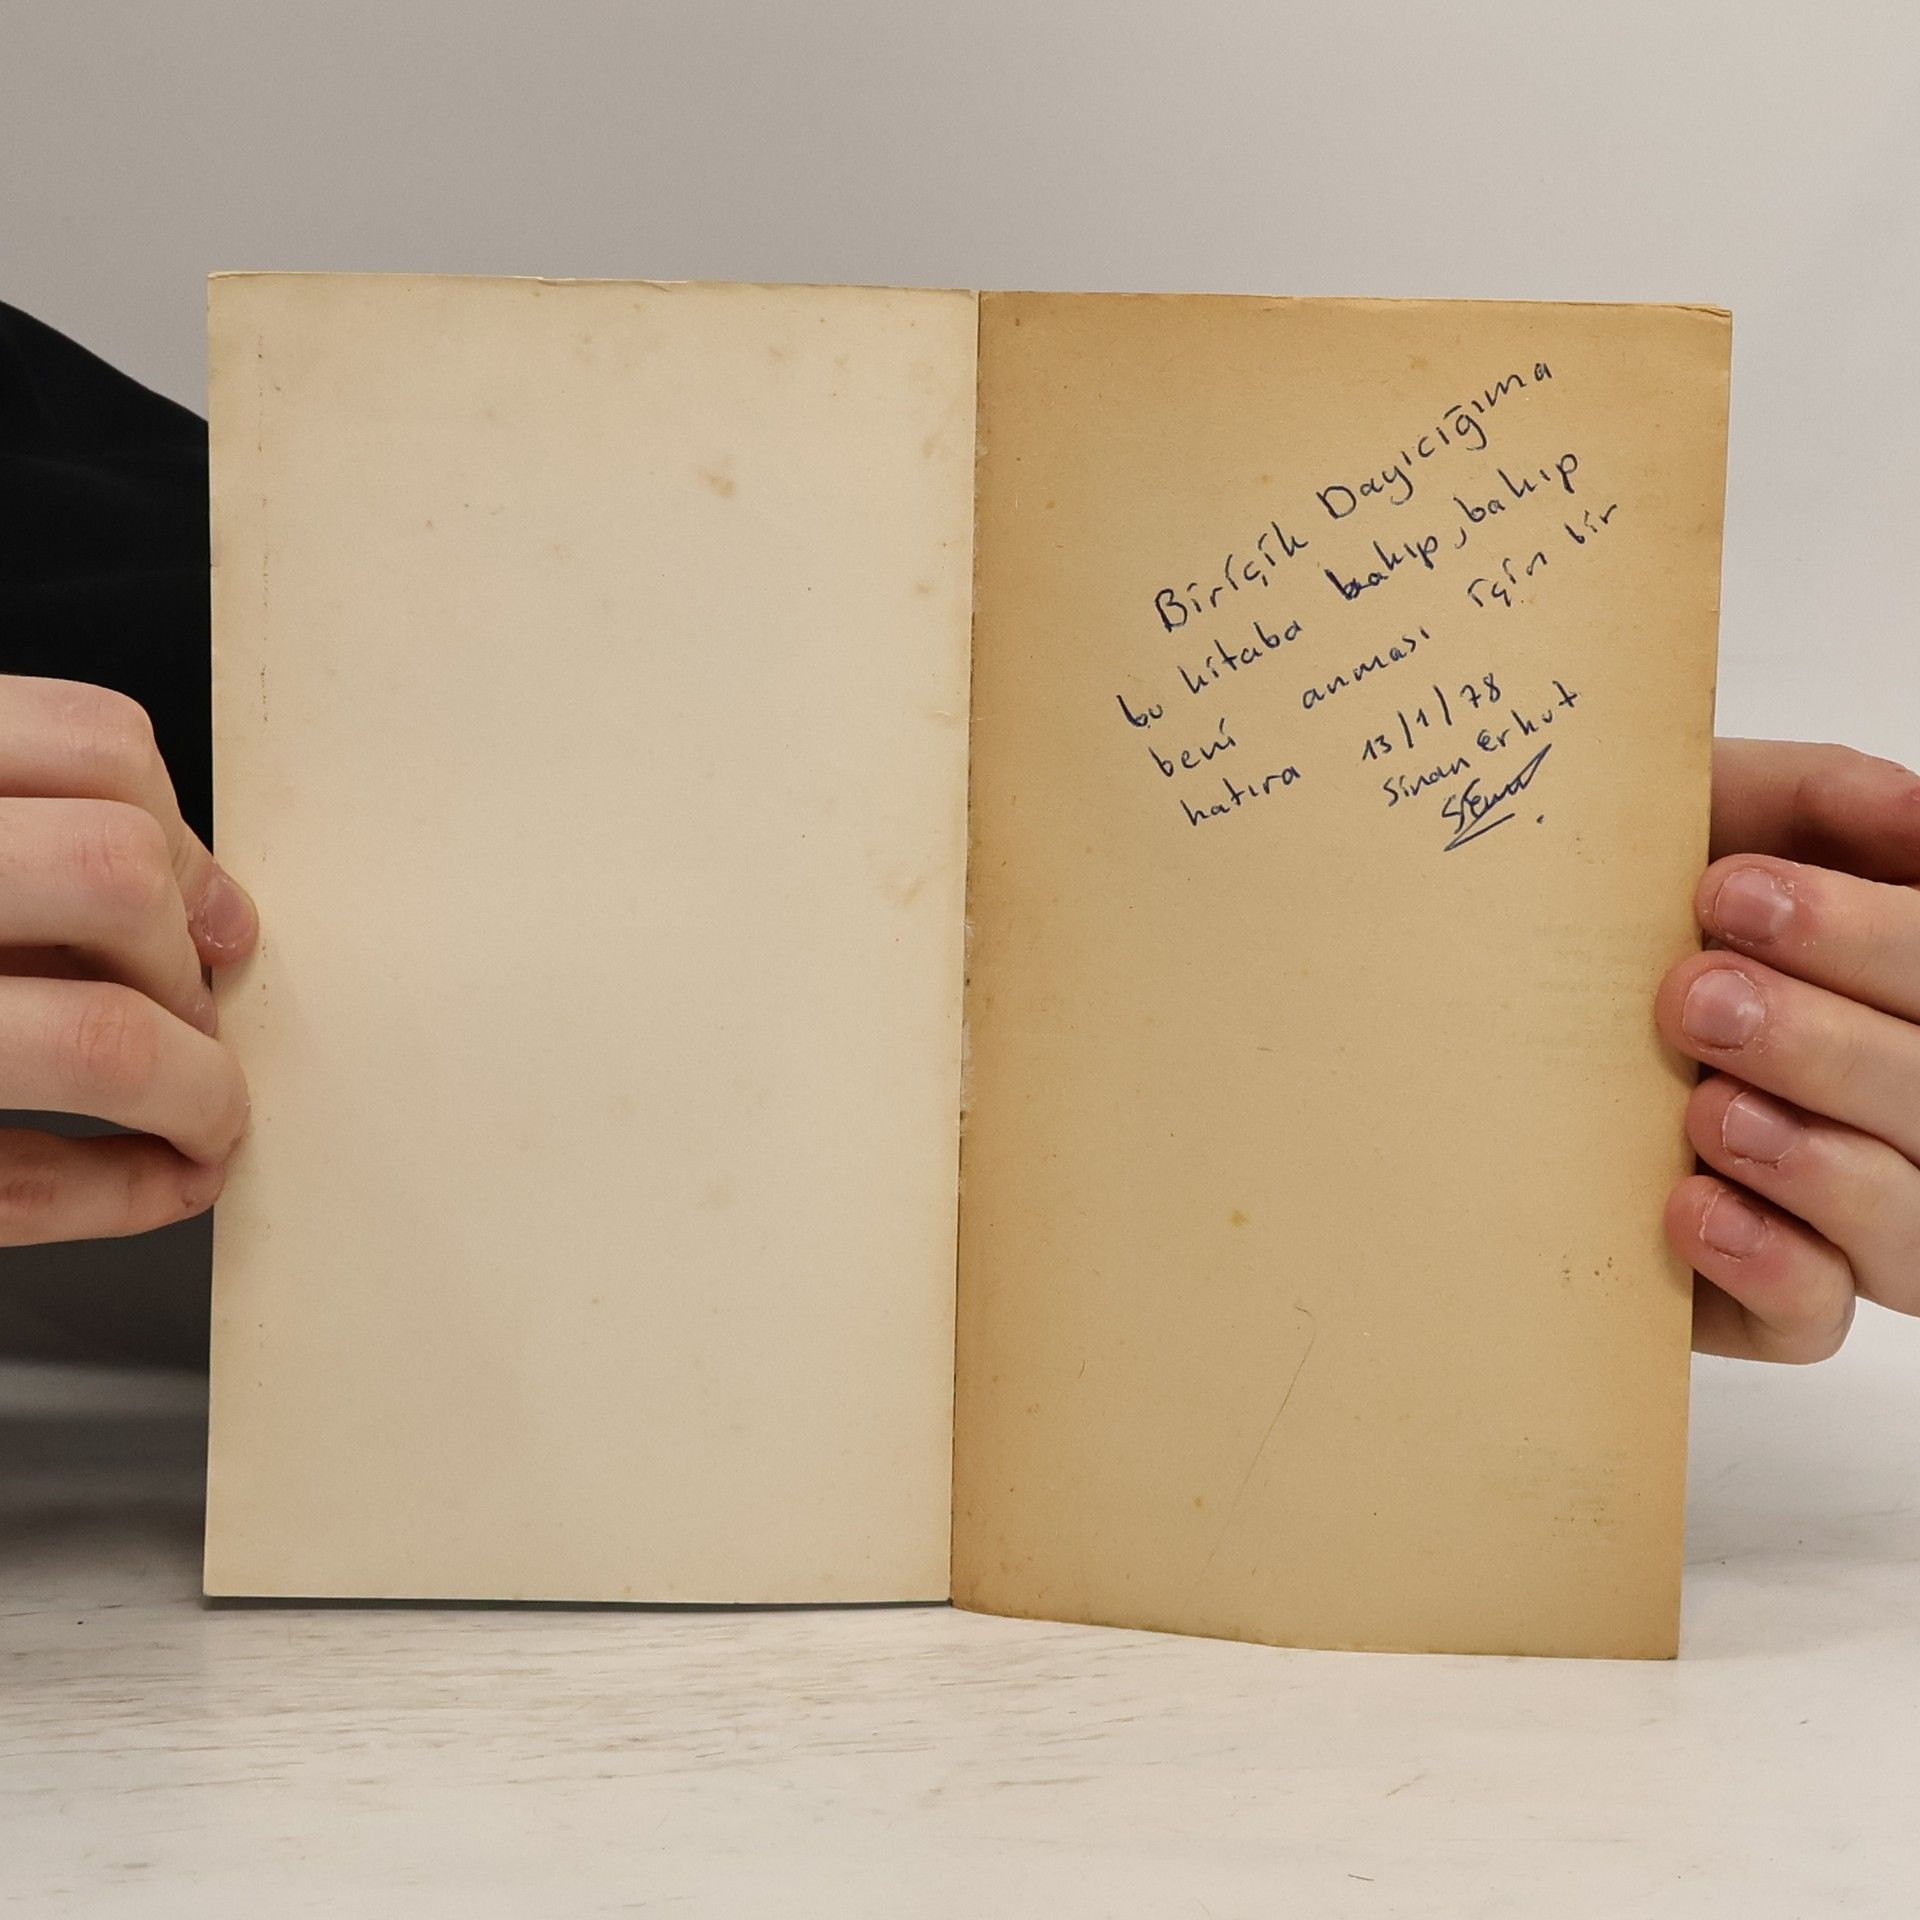 Biriçik Dayıcığıma
bu kitaba bakıp, bakıp
beni anması için bir
hatıra 13/1/78
Sinan Erkut